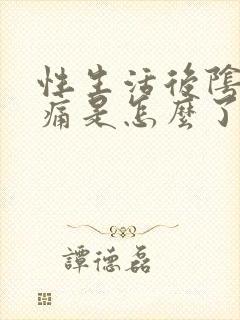 性生活後陰
痛是怎麼了
譚德磊